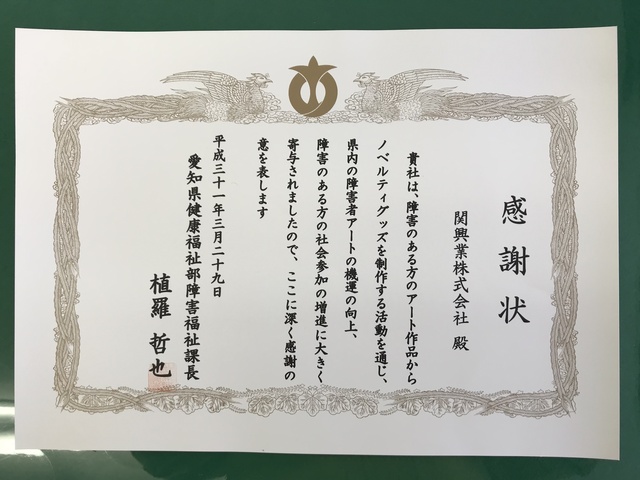 感謝状
関興業株式会社 殿
貴社は、障害のある方のアート作品から
ノベルティグッズを制作する活動を通じ、
県内の障害者アートの機運の向上、
障害のある方の社会参加の増進に大きく
寄与されましたので、ここに深く感謝の
意を表します
平成三十一年三月二十九日
愛知県健康福祉部障害福祉課長
植羅 哲也